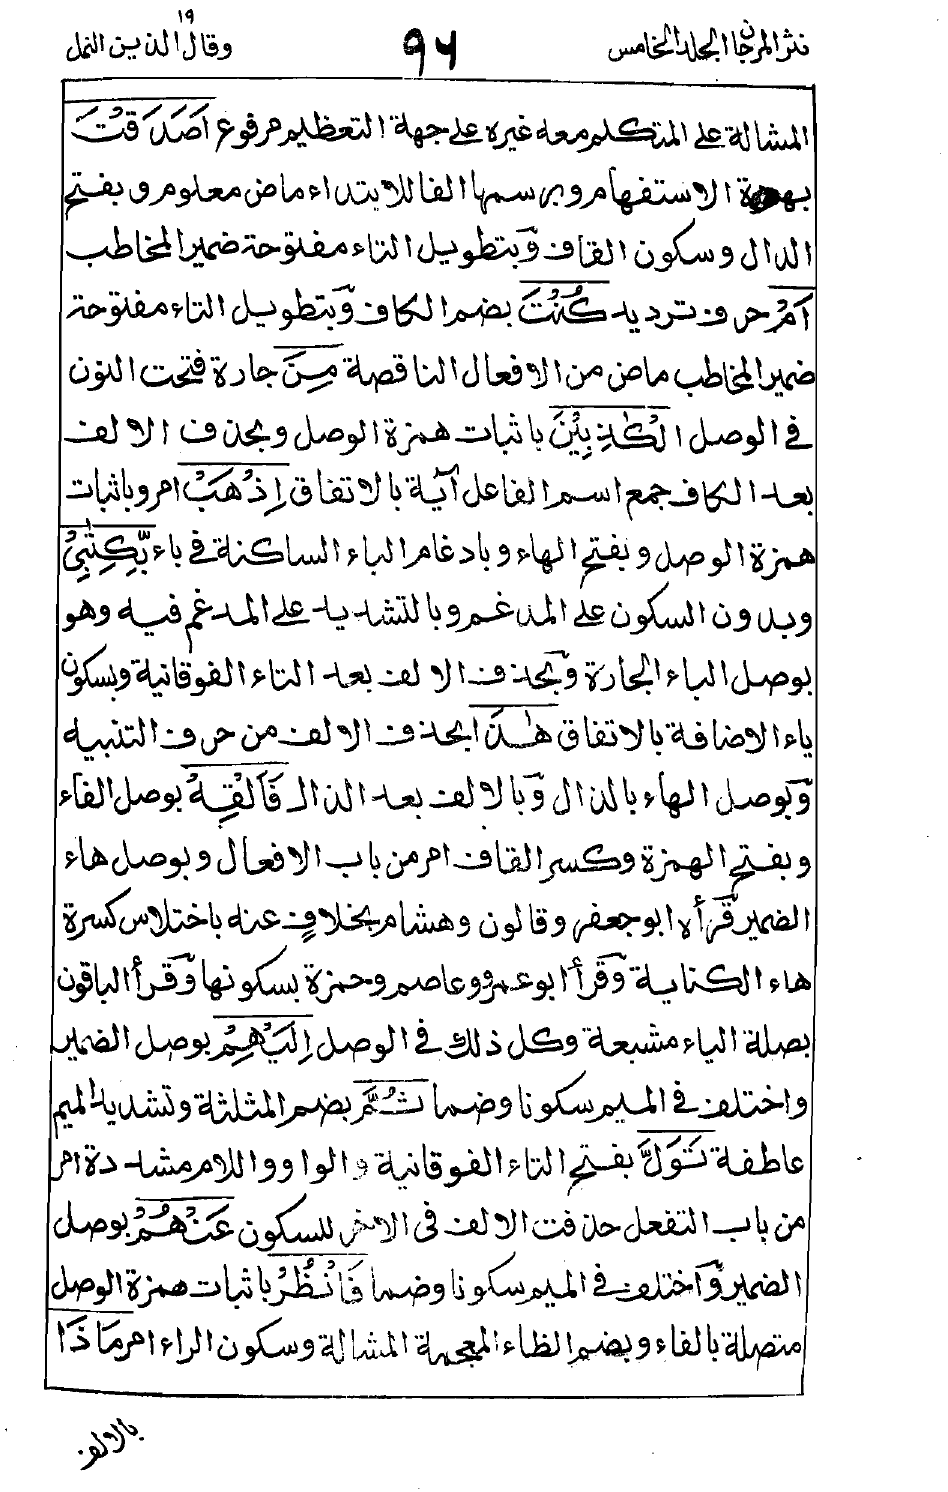 نثر المرجان المجلد الخامس
٩٦
وقال الذين ١٩ النمل
المشالة على المتكلم معه غيره على جهة التعظيم مرفوع اَصَدَقْتَ
بهمزة الاستفهام وبرسمها الفا للابتداء ماض معلوم وبفتح
الدال وسكون القاف وبتطويل التاء مفتوحة ضمير المخاطب
اَمْ حرف ترديد كُنْتَ بضم الكاف وبتطويل التاء مفتوحة
ضمير المخاطب ماض من الافعال الناقصة مِنَ جارة فتحت النون
فى الوصل الْكٰذِبِيْنَ باثبات همزة الوصل وبحذف الالف
بعد الكاف جمع اسم الفاعل آية بالاتفاق اِذْهَبْ امر وباثبات
همزة الوصل وبفتح الهاء وبادغام الباء الساكنة فى باء بِّكِتٰبِيْ
وبدون السكون على المدغم وبالتشديد على المدغم فيه وهو
بوصل الباء الجارة وبحذف الالف بعد التاء الفوقانية وبسكون
ياء الاضافة بالاتفاق هٰذَا بحذف الالف من حرف التنبيه
وبوصل الهاء بالذال وبالالف بعد الذال فَاَلْقِهْ بوصل الفاء
وبفتح الهمزة وكسر القاف امر من باب الافعال وبوصل هاء
الضمير قرأه ابو جعفر وقالون وهشام بخلاف عنه باختلاس كسرة
هاء الكناية وقرأ ابو عمرو وعاصم وحمزة بسكونها وقرأ الباقون
بصلة الياء مشبعة وكل ذلك فى الوصل اِلَيْهِمْ بوصل الضمير
واختلف فى الميم سكونا وضما ثُمَّ بضم المثلثة وتشديد الميم
عاطفة تَوَلَّ بفتح التاء الفوقانية والواو واللام مشددة امر
من باب التفعل حذفت الالف فى الاخر للسكون عَنْهُمْ بوصل
الضمير واختلف فى الميم سكونا وضما فَانْظُرْ باثبات همزة الوصل
متصلة بالفاء وبضم الظاء المعجمة المشالة وسكون الراء امر مَاذَا
بالالف